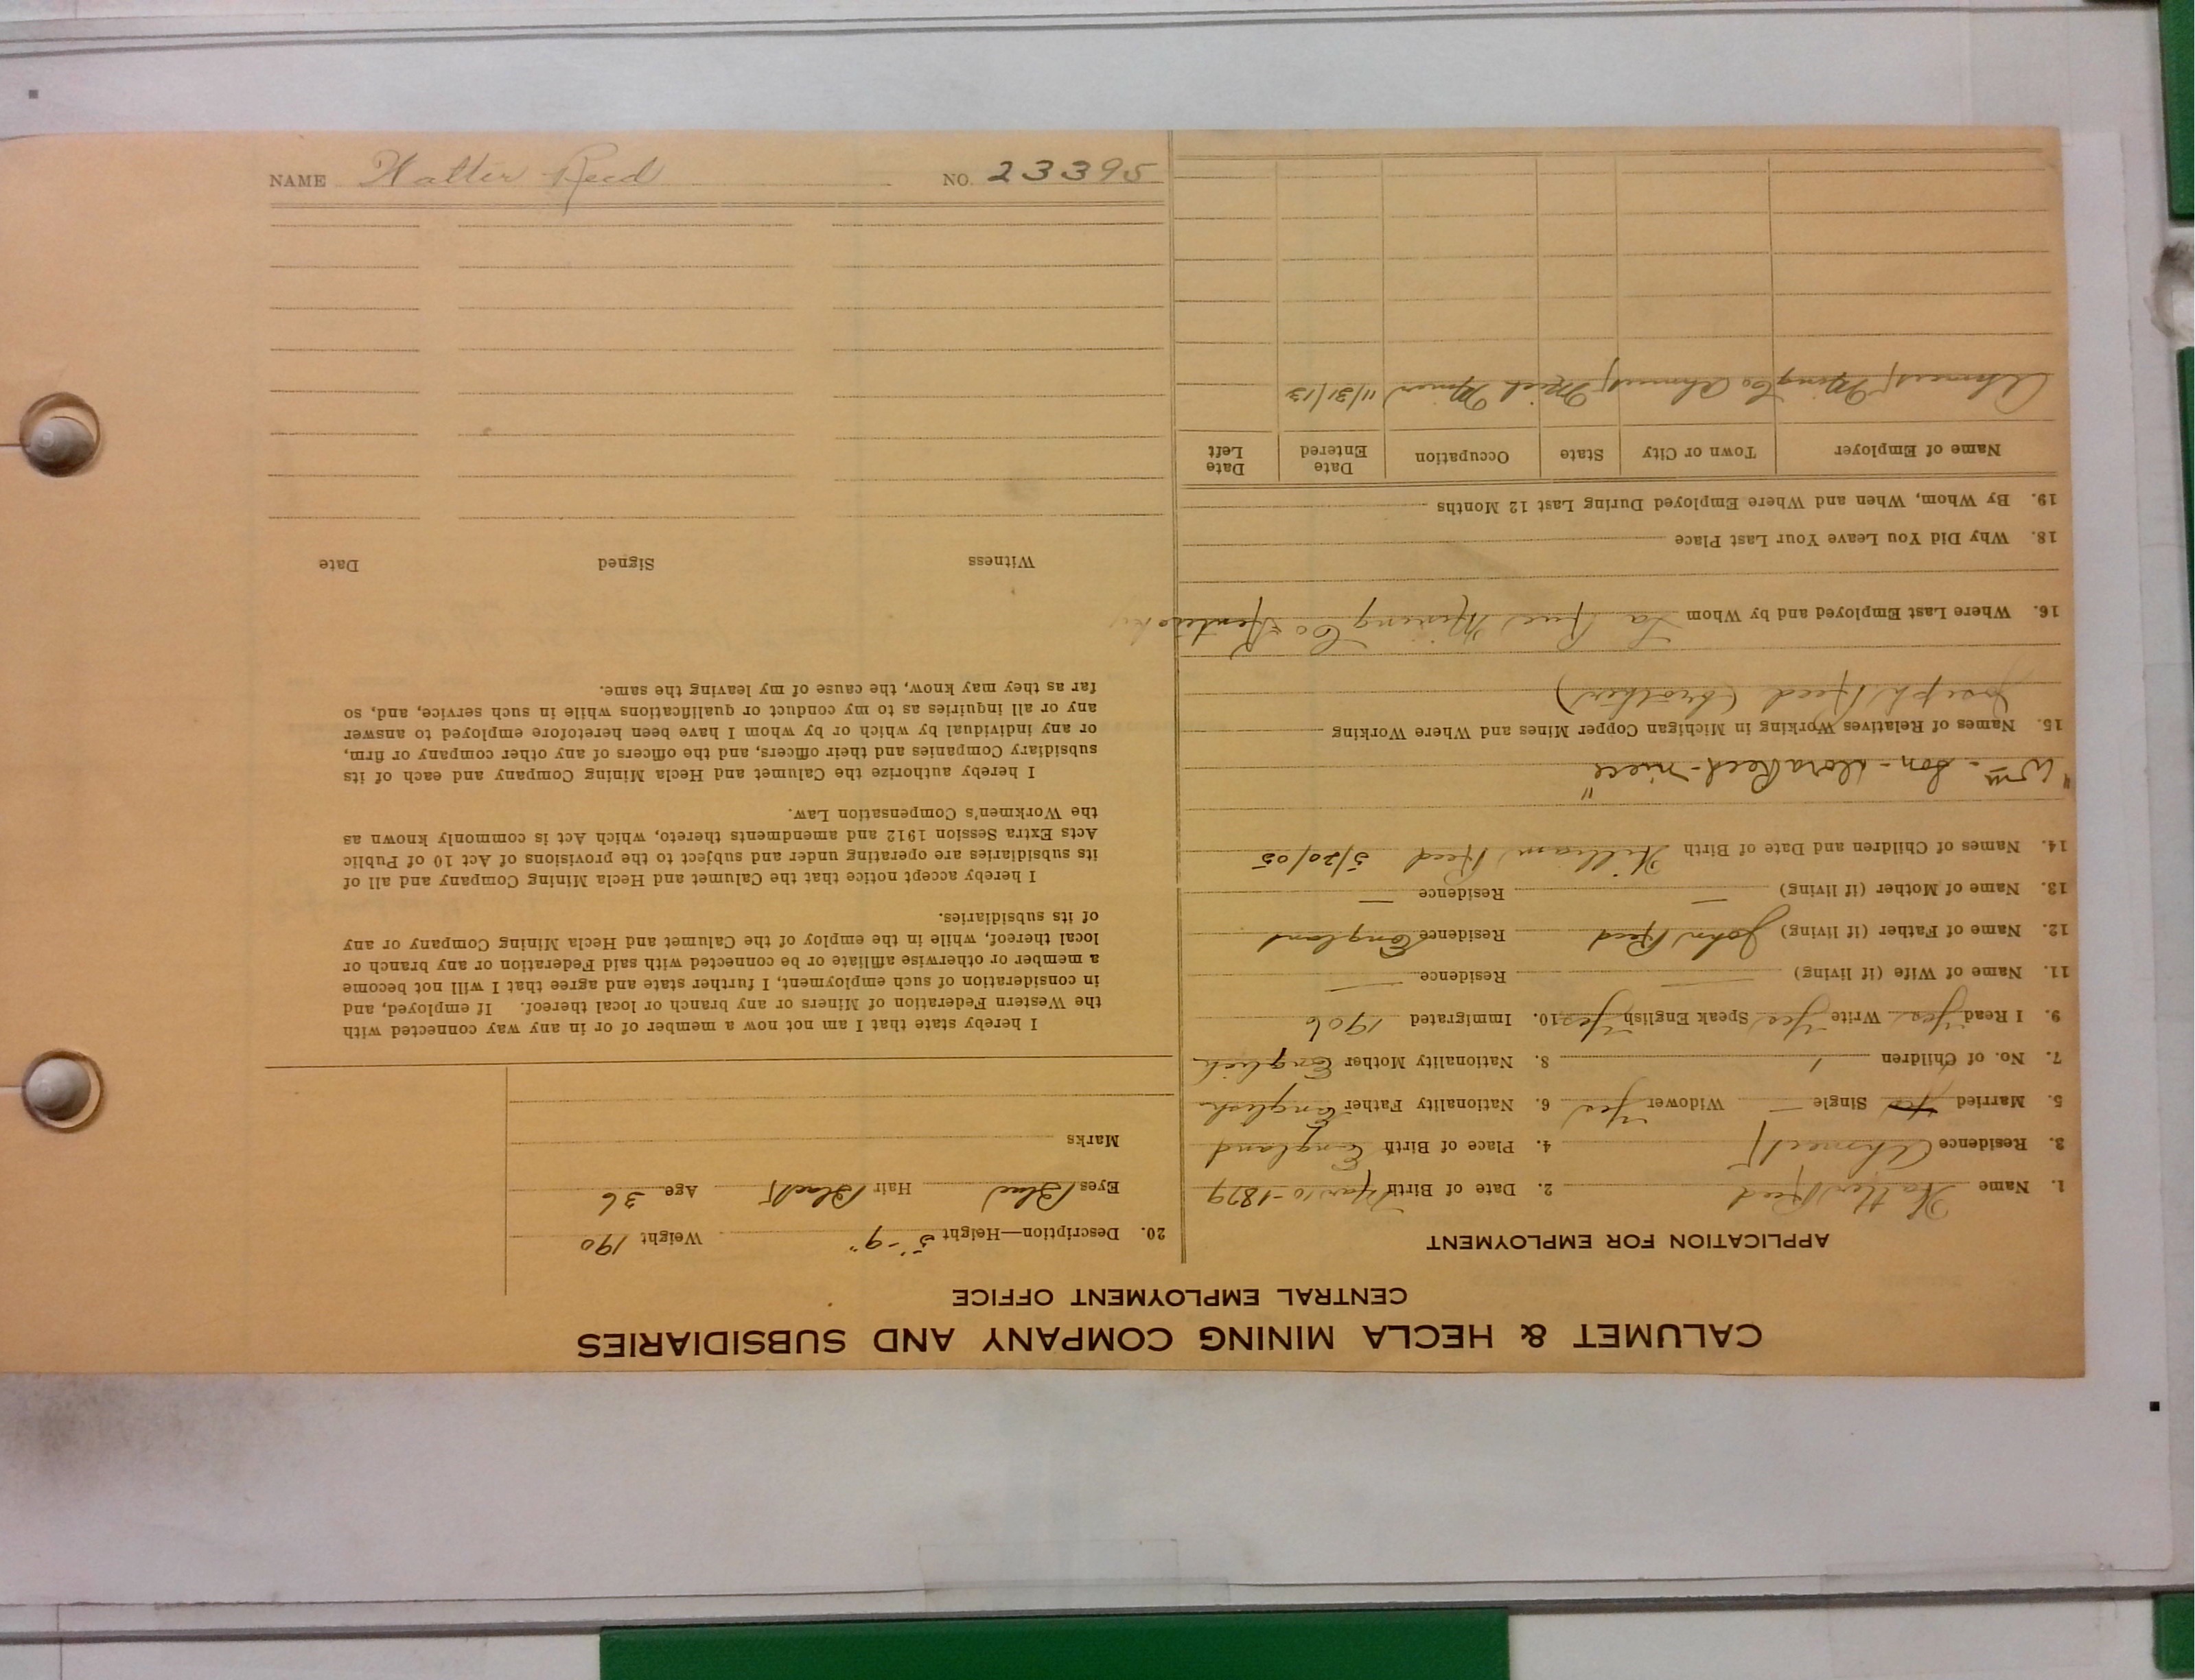 CALUMET & HECLA MINING COMPANY AND SUBSIDIARIES
CENTRAL EMPLOYMENT OFFICE
APPLICATION FOR EMPLOYMENT
1. Name Walter Reed 2. Date of Birth 10-1879
3. Residence Ahmeek 4. Place of Birth England
5. Married Yes Single — Widower Yes 6. Nationality Father English
7. No. of Children 1 8. Nationality Mother English
9. I Read Yes Write Yes Speak English Yes 10. Immigrated 1906
11. Name of Wife (if living) — Residence —
12. Name of Father (if living) John Reed Residence England
13. Name of Mother (if living) — Residence —
14. Names of Children and Date of Birth William Reed 5/20/05
"Wm - Son - Dora Reed - niece"
15. Names of Relatives Working in Michigan Copper Mines and Where Working
Joseph Reed (brother)
16. Where Last Employed and by Whom La Rue Mining Co
18. Why Did You Leave Your Last Place
19. By Whom, When and Where Employed During Last 12 Months
Name of Employer Town or City State Occupation Date Entered Date Left
Ahmeek Mining Co Ahmeek Mich Miner 11/31/13
20. Description—Height 5'-9" Weight 190
Eyes Blue Hair Black Age 36
Marks
I hereby state that I am not now a member of or in any way connected with
the Western Federation of Miners or any branch or local thereof. If employed, and
in consideration of such employment, I further state and agree that I will not become
a member or otherwise affiliate or be connected with said Federation or any branch or
local thereof, while in the employ of the Calumet and Hecla Mining Company or any
of its subsidiaries.
I hereby accept notice that the Calumet and Hecla Mining Company and all of
its subsidiaries are operating under and subject to the provisions of Act 10 of Public
Acts Extra Session 1912 and amendments thereto, which Act is commonly known as
the Workmen's Compensation Law.
I hereby authorize the Calumet and Hecla Mining Company and each of its
subsidiary Companies and their officers, and the officers of any other company or firm,
or any individual by which or by whom I have been heretofore employed to answer
any or all inquiries as to my conduct or qualifications while in such service, and, so
far as they may know, the cause of my leaving the same.
Witness Signed Date
NAME Walter Reed NO. 23395